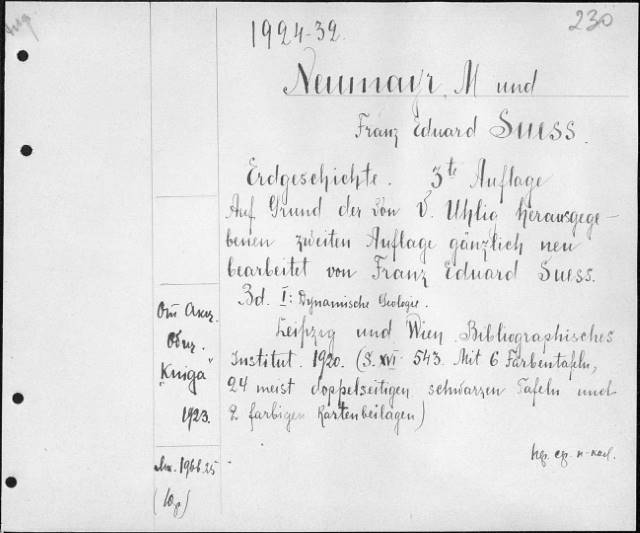 230
1924-32.
Neumayr, M und
Franz Eduard Suess.
Erdgeschichte. 3te Auflage
Auf Grund der von V. Uhlig herausgege-
benen zweiten Auflage gänzlich neu
bearbeitet von Franz Eduard Suess.
Bd. I: Dynamische Geologie.
Leipzig und Wien Bibliographisches
Institut. 1920. (S. XVI 543. Mit 6 Farbentafeln,
24 meist doppelseitigen schwarzen Tafeln und
2 farbigen Kartenbeilagen)
От Акц.
Общ.
"Kniga"
1923.